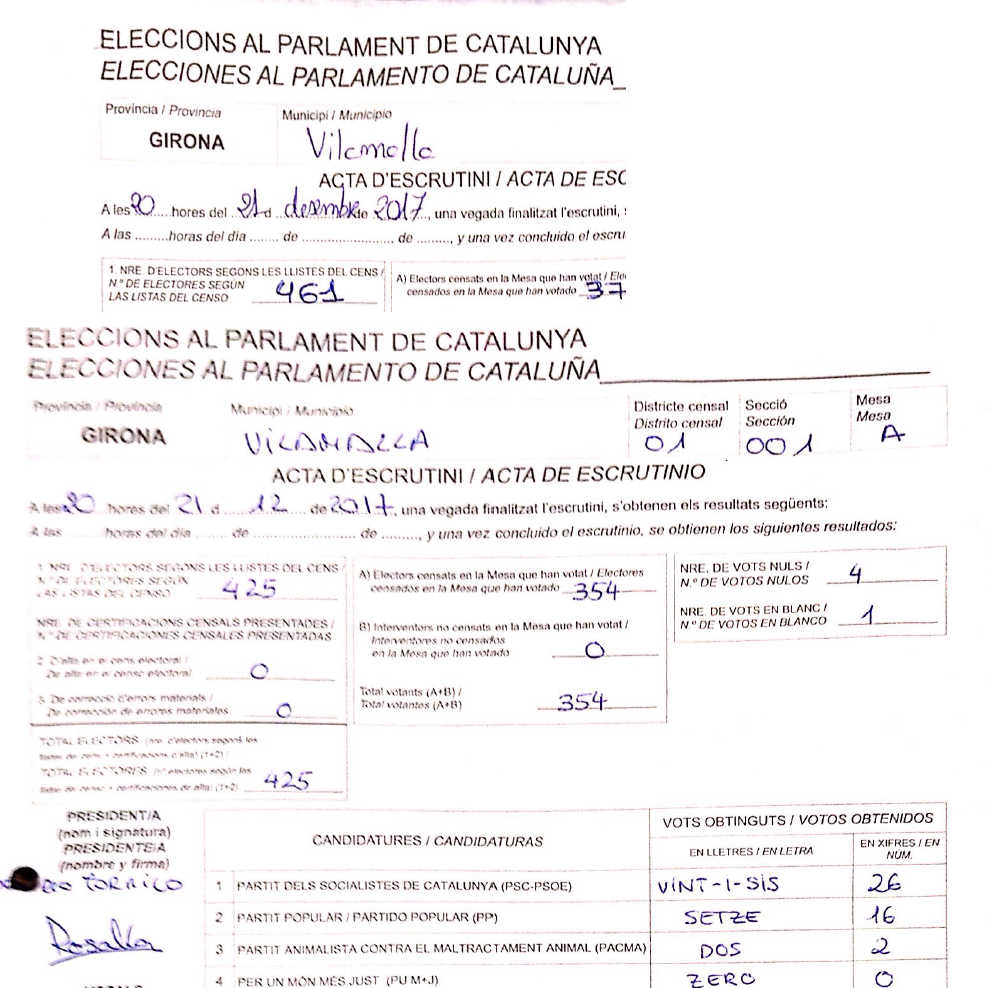 ELECCIONS AL PARLAMENT DE CATALUNYA
ELECCIONES AL PARLAMENTO DE CATALUÑA
Província / Provincia
Municipi / Municipio
GIRONA
Vilamalla
ACTA D'ESCRUTINI / ACTA DE ESC
A les 20 hores del 21 d desembre de 2017, una vegada finalitzat l'escrutini, s
A las .........horas del día ........ de ........................ de ........., y una vez concluido el escru
1. NRE. D'ELECTORS SEGONS LES LLISTES DEL CENS /
N.º DE ELECTORES SEGÚN
LAS LISTAS DEL CENSO 461
A) Electors censats en la Mesa que han votat / Ele
censados en la Mesa que han votado 37
ELECCIONS AL PARLAMENT DE CATALUNYA
ELECCIONES AL PARLAMENTO DE CATALUÑA
Província / Provincia
Municipi / Municipio
Districte censal
Distrito censal
Secció
Sección
Mesa
Mesa
GIRONA
VILAMALLA
01
001
A
ACTA D'ESCRUTINI / ACTA DE ESCRUTINIO
A les 20 hores del 21 d 12 de 2017, una vegada finalitzat l'escrutini, s'obtenen els resultats següents:
A las ........ horas del día ........ de ........................ de ........., y una vez concluido el escrutinio, se obtienen los siguientes resultados:
1. NRE. D'ELECTORS SEGONS LES LLISTES DEL CENS /
N.º DE ELECTORES SEGÚN
LAS LISTAS DEL CENSO 425
NRE. DE CERTIFICACIONS CENSALS PRESENTADES /
N.º DE CERTIFICACIONES CENSALES PRESENTADAS
2. D'alta en el cens electoral /
De alta en el censo electoral 0
3. De correcció d'errors materials /
De corrección de errores materiales 0
TOTAL ELECTORS (nre. d'electors segons les
llistes de cens + certificacions d'alta) (1+2) /
TOTAL ELECTORES (nº electores según las
listas de censo + certificaciones de alta) (1+2) 425
A) Electors censats en la Mesa que han votat / Electores
censados en la Mesa que han votado 354
B) Interventors no censats en la Mesa que han votat /
Interventores no censados
en la Mesa que han votado 0
Total votants (A+B) /
Total votantes (A+B) 354
NRE. DE VOTS NULS /
N.º DE VOTOS NULOS 4
NRE. DE VOTS EN BLANC /
N.º DE VOTOS EN BLANCO 1
PRESIDENT/A
(nom i signatura)
PRESIDENTE/A
(nombre y firma)
TORRICO
Rosalía
CANDIDATURES / CANDIDATURAS
VOTS OBTINGUTS / VOTOS OBTENIDOS
EN LLETRES / EN LETRA
EN XIFRES / EN
NÚM.
1 PARTIT DELS SOCIALISTES DE CATALUNYA (PSC-PSOE) VINT-I-SIS 26
2 PARTIT POPULAR / PARTIDO POPULAR (PP) SETZE 16
3 PARTIT ANIMALISTA CONTRA EL MALTRACTAMENT ANIMAL (PACMA) DOS 2
4 PER UN MÓN MÉS JUST (PU M+J) ZERO 0